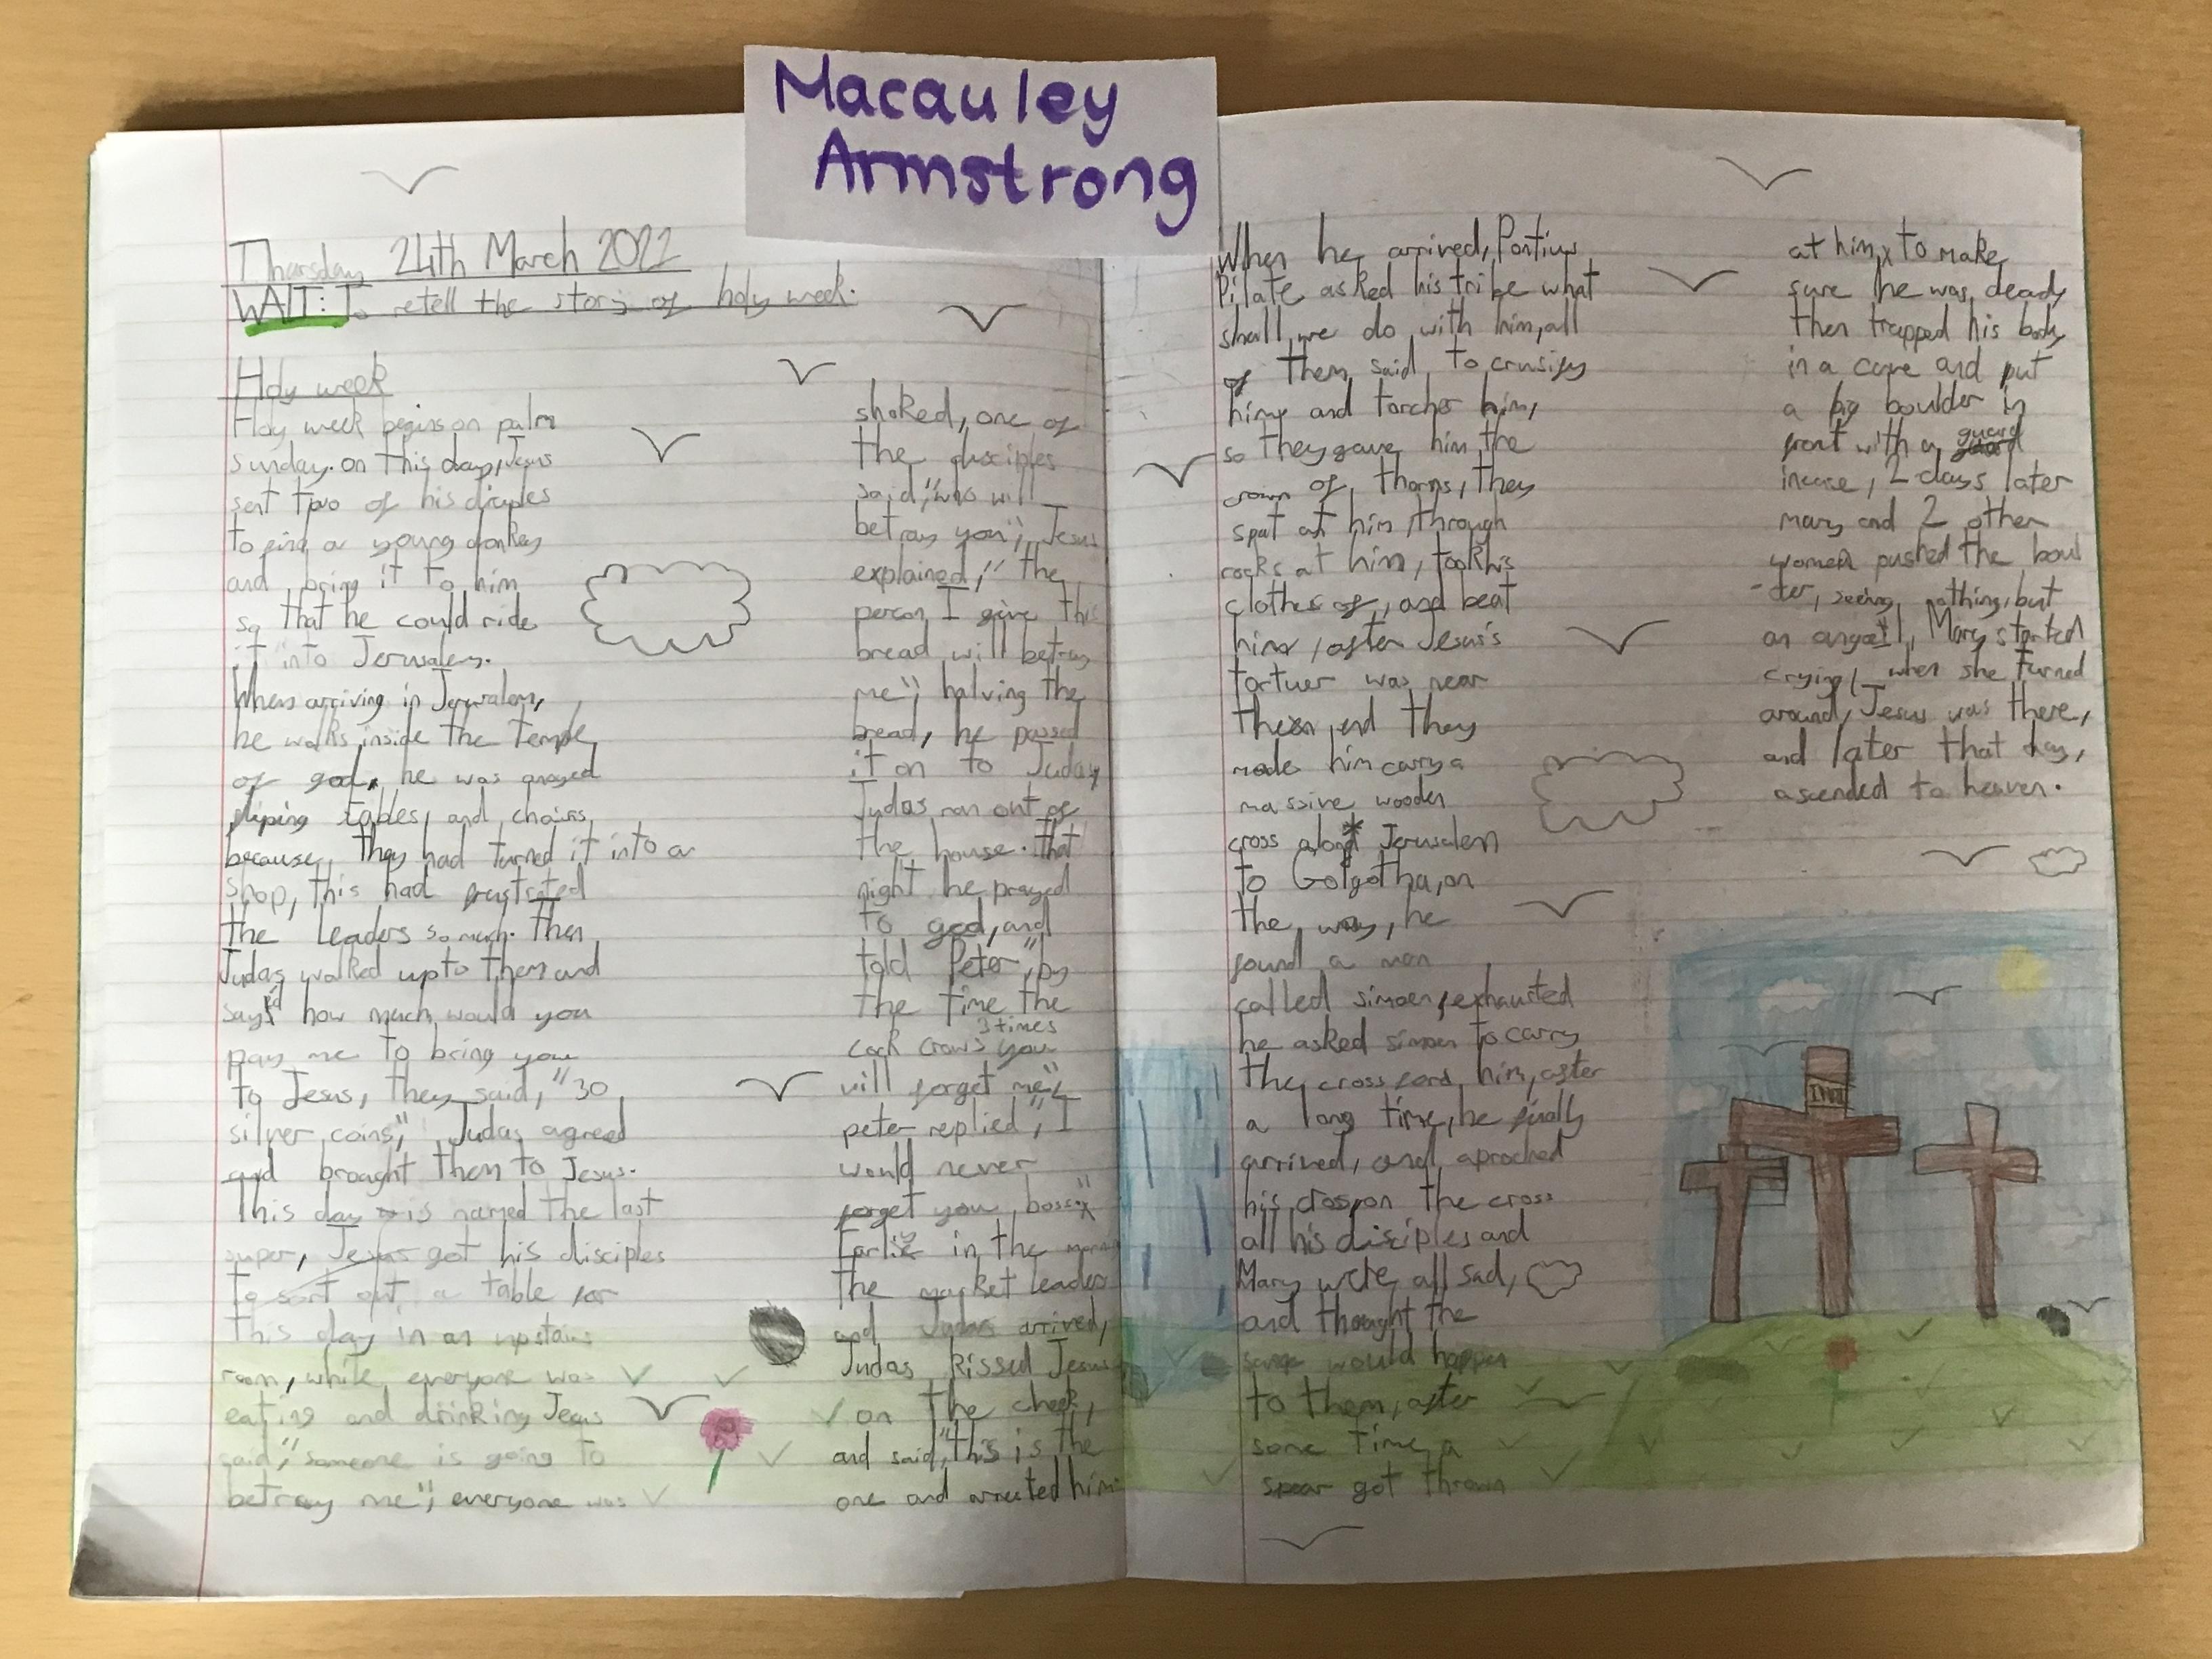 Macauley
Armstrong
Thursday 24th March 2022
WALT: To retell the story of holy week.
Holy week
Holy week begins on palm
sunday. on this day, Jesus
sent two of his diciples
to find a young donkey
and bring it to him
so that he could ride
it into Jerusalem.
When arriving in Jerusalem,
he walks inside the Temple
of god, he was anoyed
fliping tables, and chairs,
because they had turned it into a
shop, this had frustrated
the Leaders so much. Then
Judas walked upto them and
said how much would you
pay me to bring you
to Jesus, they said, "30
silver coins", Judas agreed
and brought them to Jesus.
This day is named the last
super, Jesus got his disciples
to sort out a table for
this day in an upstairs
room, while everyone was
eating and drinking Jesus
said, "someone is going to
betray me", everyone was
shoked, one of
the disciples
said, "who will
betray you", Jesus
explained, "the
person I give this
bread will betray
me", halving the
bread, he passed
it on to Judas,
Judas ran out of
the house. that
night he prayed
to god, and
told Peter, "by
the time the
cock crows 3 times you
will forget me",
peter replied, "I
would never
forget you boss"
Earlier in the morning
the market leaders
and Judas arrived,
Judas kissed Jesus
on the cheek,
and said, "this is the
one and arrested him
When he arrived, Pontius
Pilate asked his tribe what
shall we do with him, all
of them said to crusify
him and torcher him,
so they gave him the
crown of thorns, they
spat at him, through
rocks at him, took his
clothes of, and beat
him, after Jesus's
tortuer was near
the end they
made him carry a
massive wooden
cross along Jerusalem
to Golgotha, on
the way, he
found a man
called simoen, exhausted
he asked simoen to carry
the cross for him, after
a long time, he finally
arrived, and aproched
his cross, on the cross
all his disciples and
Mary were all sad,
and thought the
same would happen
to them, after
some time a
spear got thrown
at him, to make
sure he was dead,
then trapped his body
in a cave and put
a big boulder in
front with a guard
incase, 2 days later
mary and 2 other
women pushed the boul
-der, seeing nothing, but
an angell, Mary started
crying, when she turned
around, Jesus was there,
and later that day,
ascended to heaven.
INRI